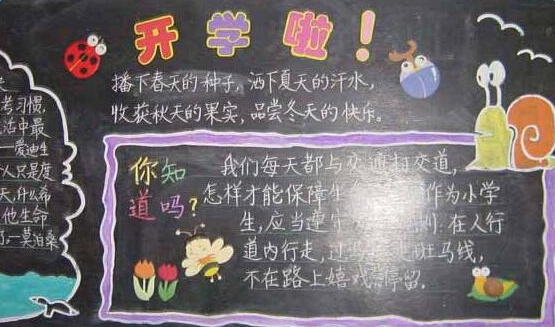 开学啦！
播下春天的种子，洒下夏天的汗水，
收获秋天的果实，品尝冬天的快乐。
考习惯，
活中最
——爱迪生
个人只是度
天，什么希
他生命
了—莫泊桑
你知
道吗？
我们每天都与交通打交道，
怎样才能保障生 作为小学
生，应当遵 则：在人行
道内行走，过 走斑马线，
不在路上嬉戏 停留。